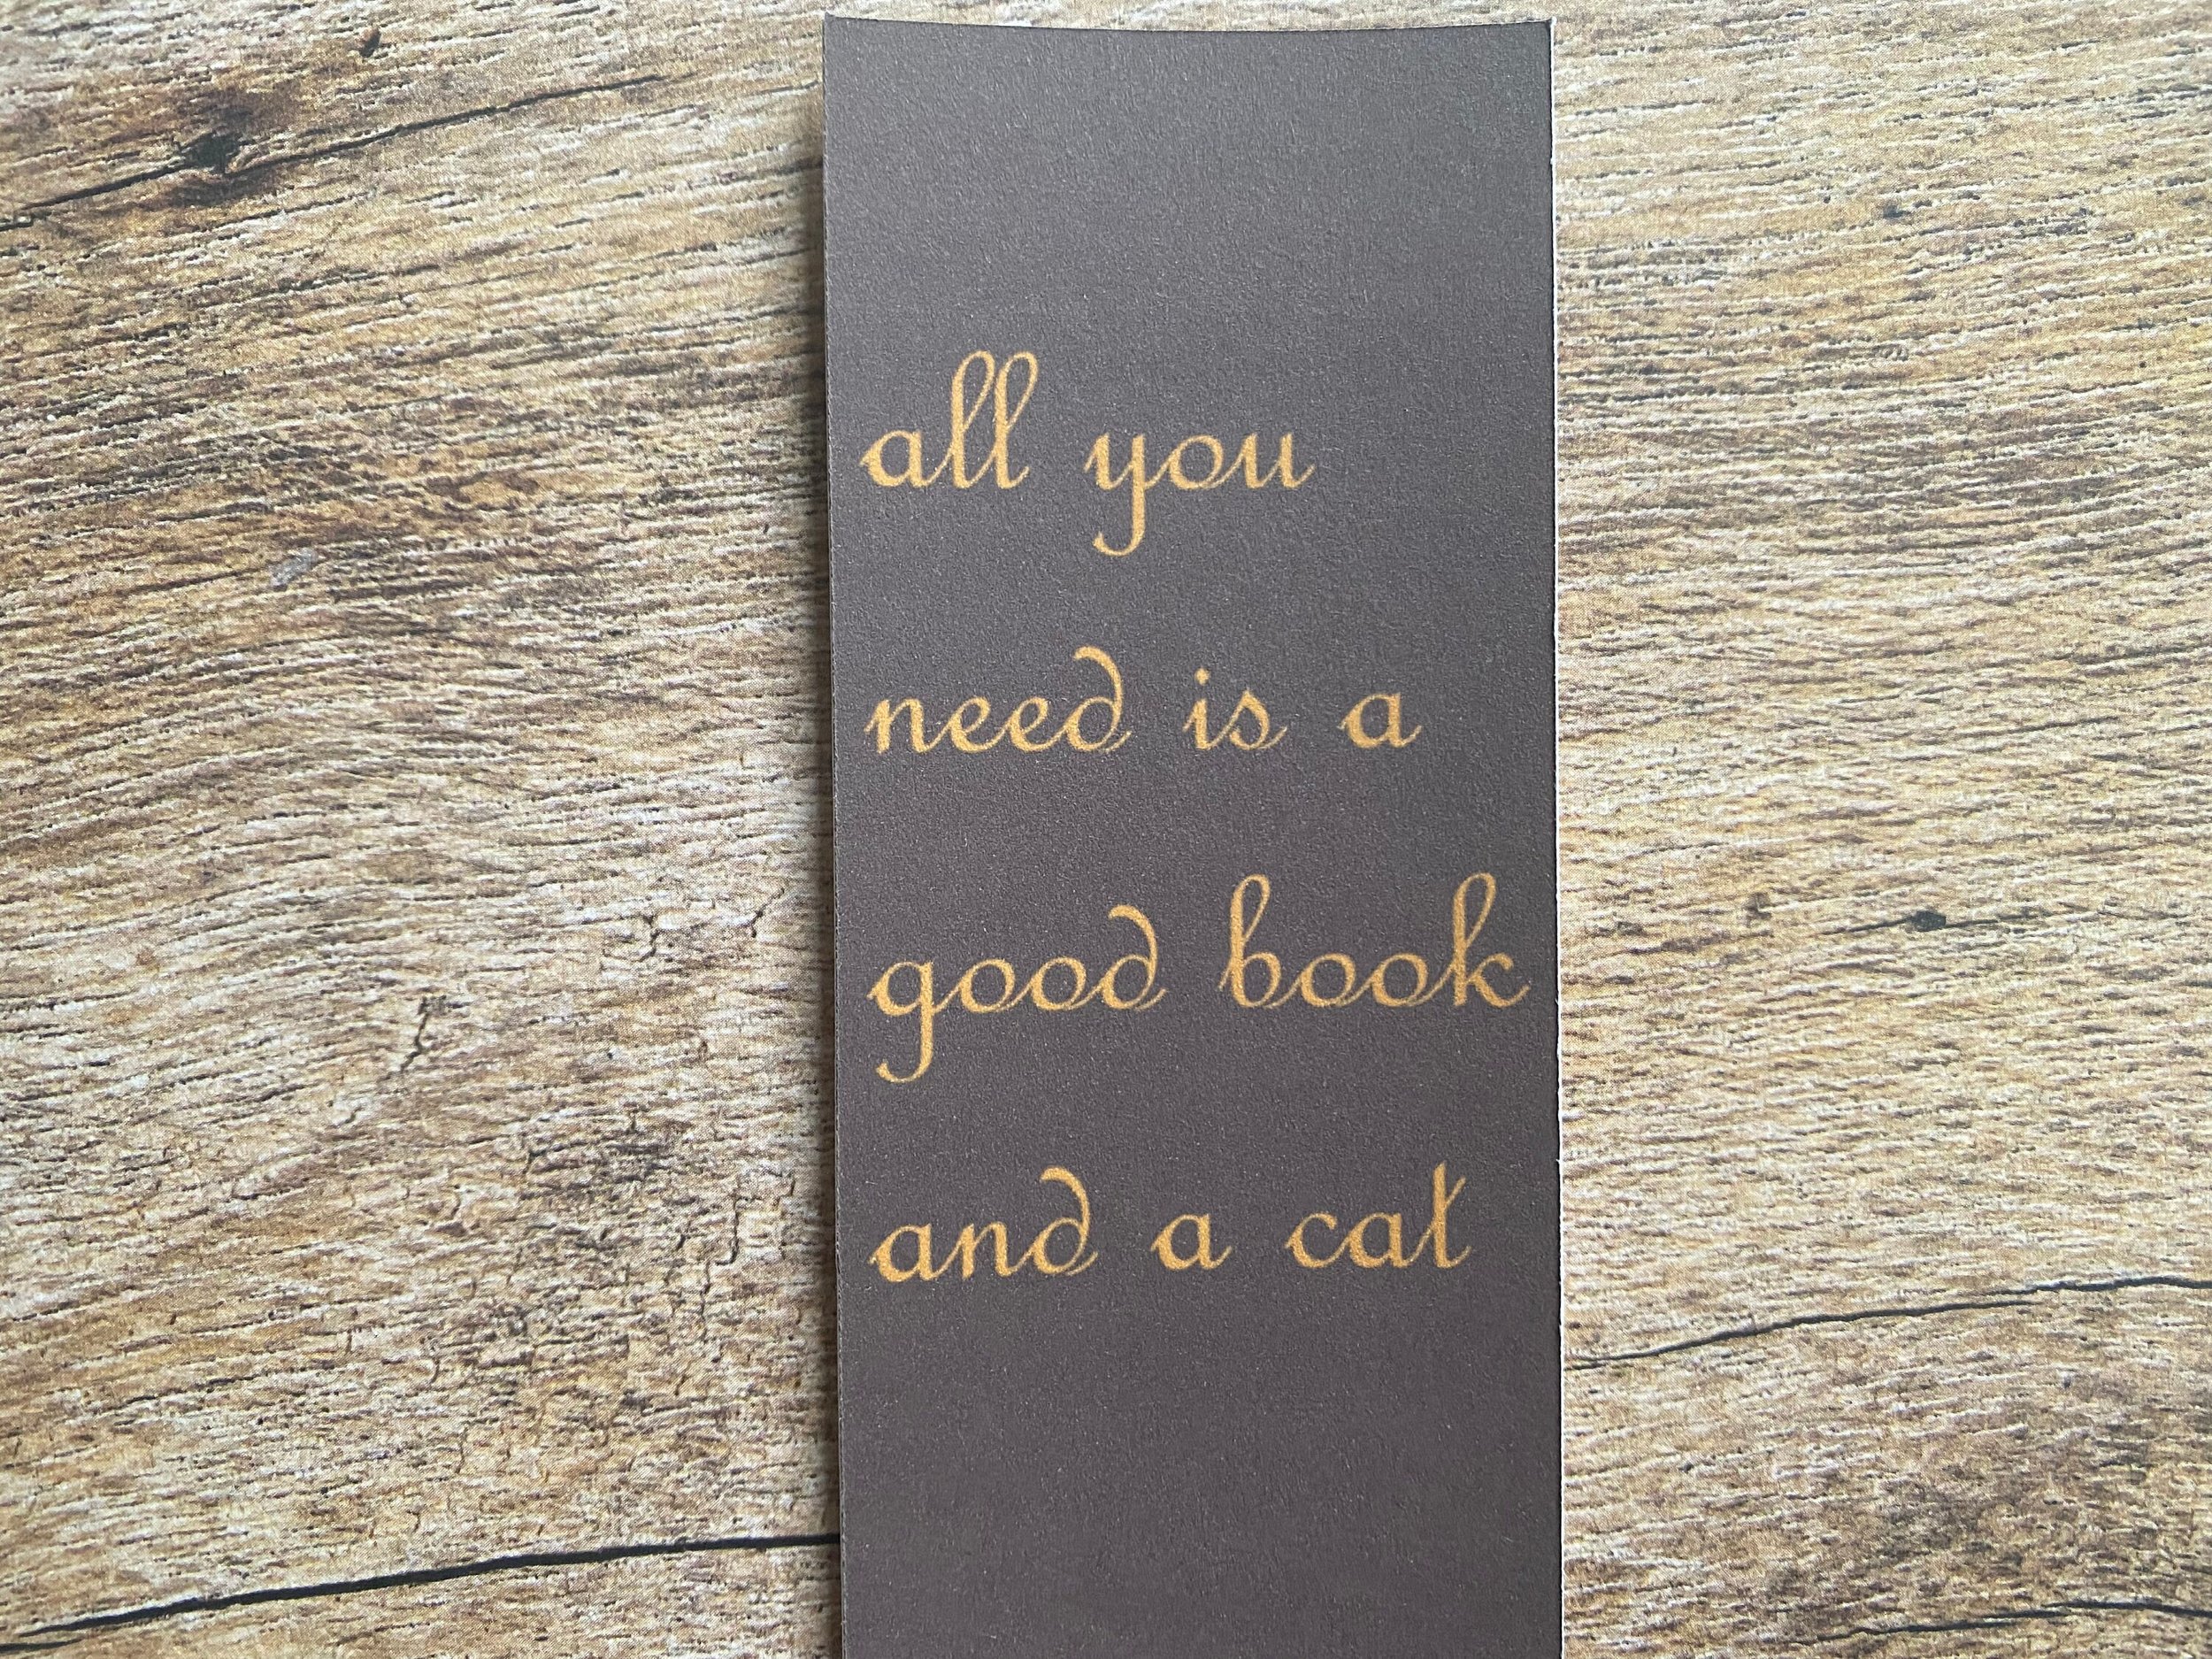 all you
need is a
good book
and a cat